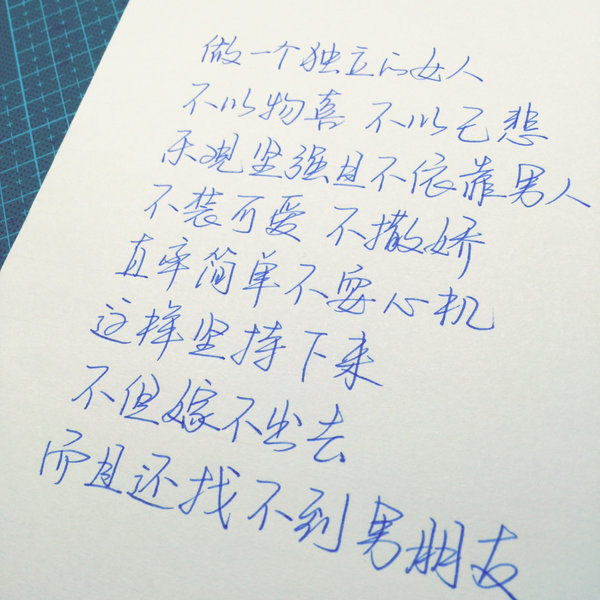 做一个独立的女人
不以物喜 不以己悲
乐观坚强且不依靠男人
不装可爱 不撒娇
直率简单不耍心机
这样坚持下来
不但嫁不出去
而且还找不到男朋友